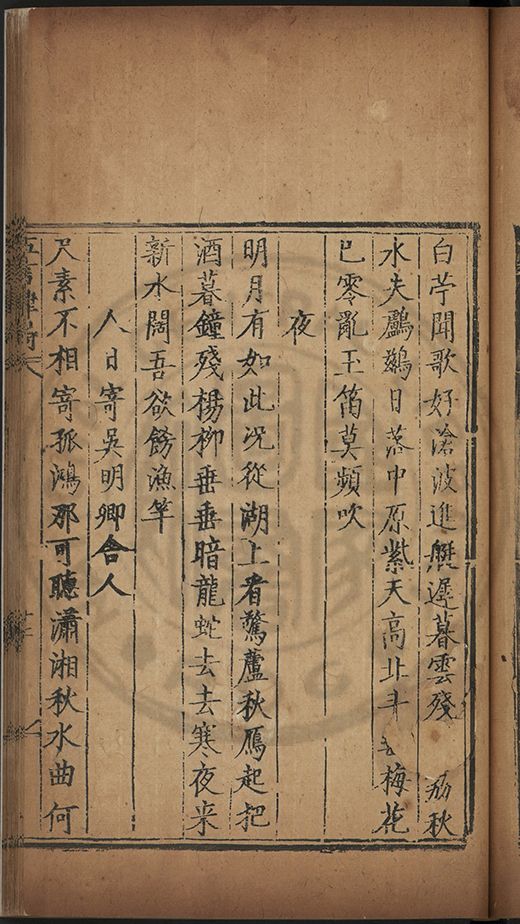 白苧聞歌好滄波進艇遲暮雲殘荔秋
水失鸕鷀日落中原紫天高北斗梅花
已零亂玉笛莫頻吹
夜
明月有如此況從湖上看驚蘆秋鴈起把
酒暮鐘殘楊柳垂垂暗龍蛇去去寒夜来
新水闊吾欲飭漁竿
人日寄吳明卿舍人
尺素不相寄孤鴻那可聽瀟湘秋水曲何